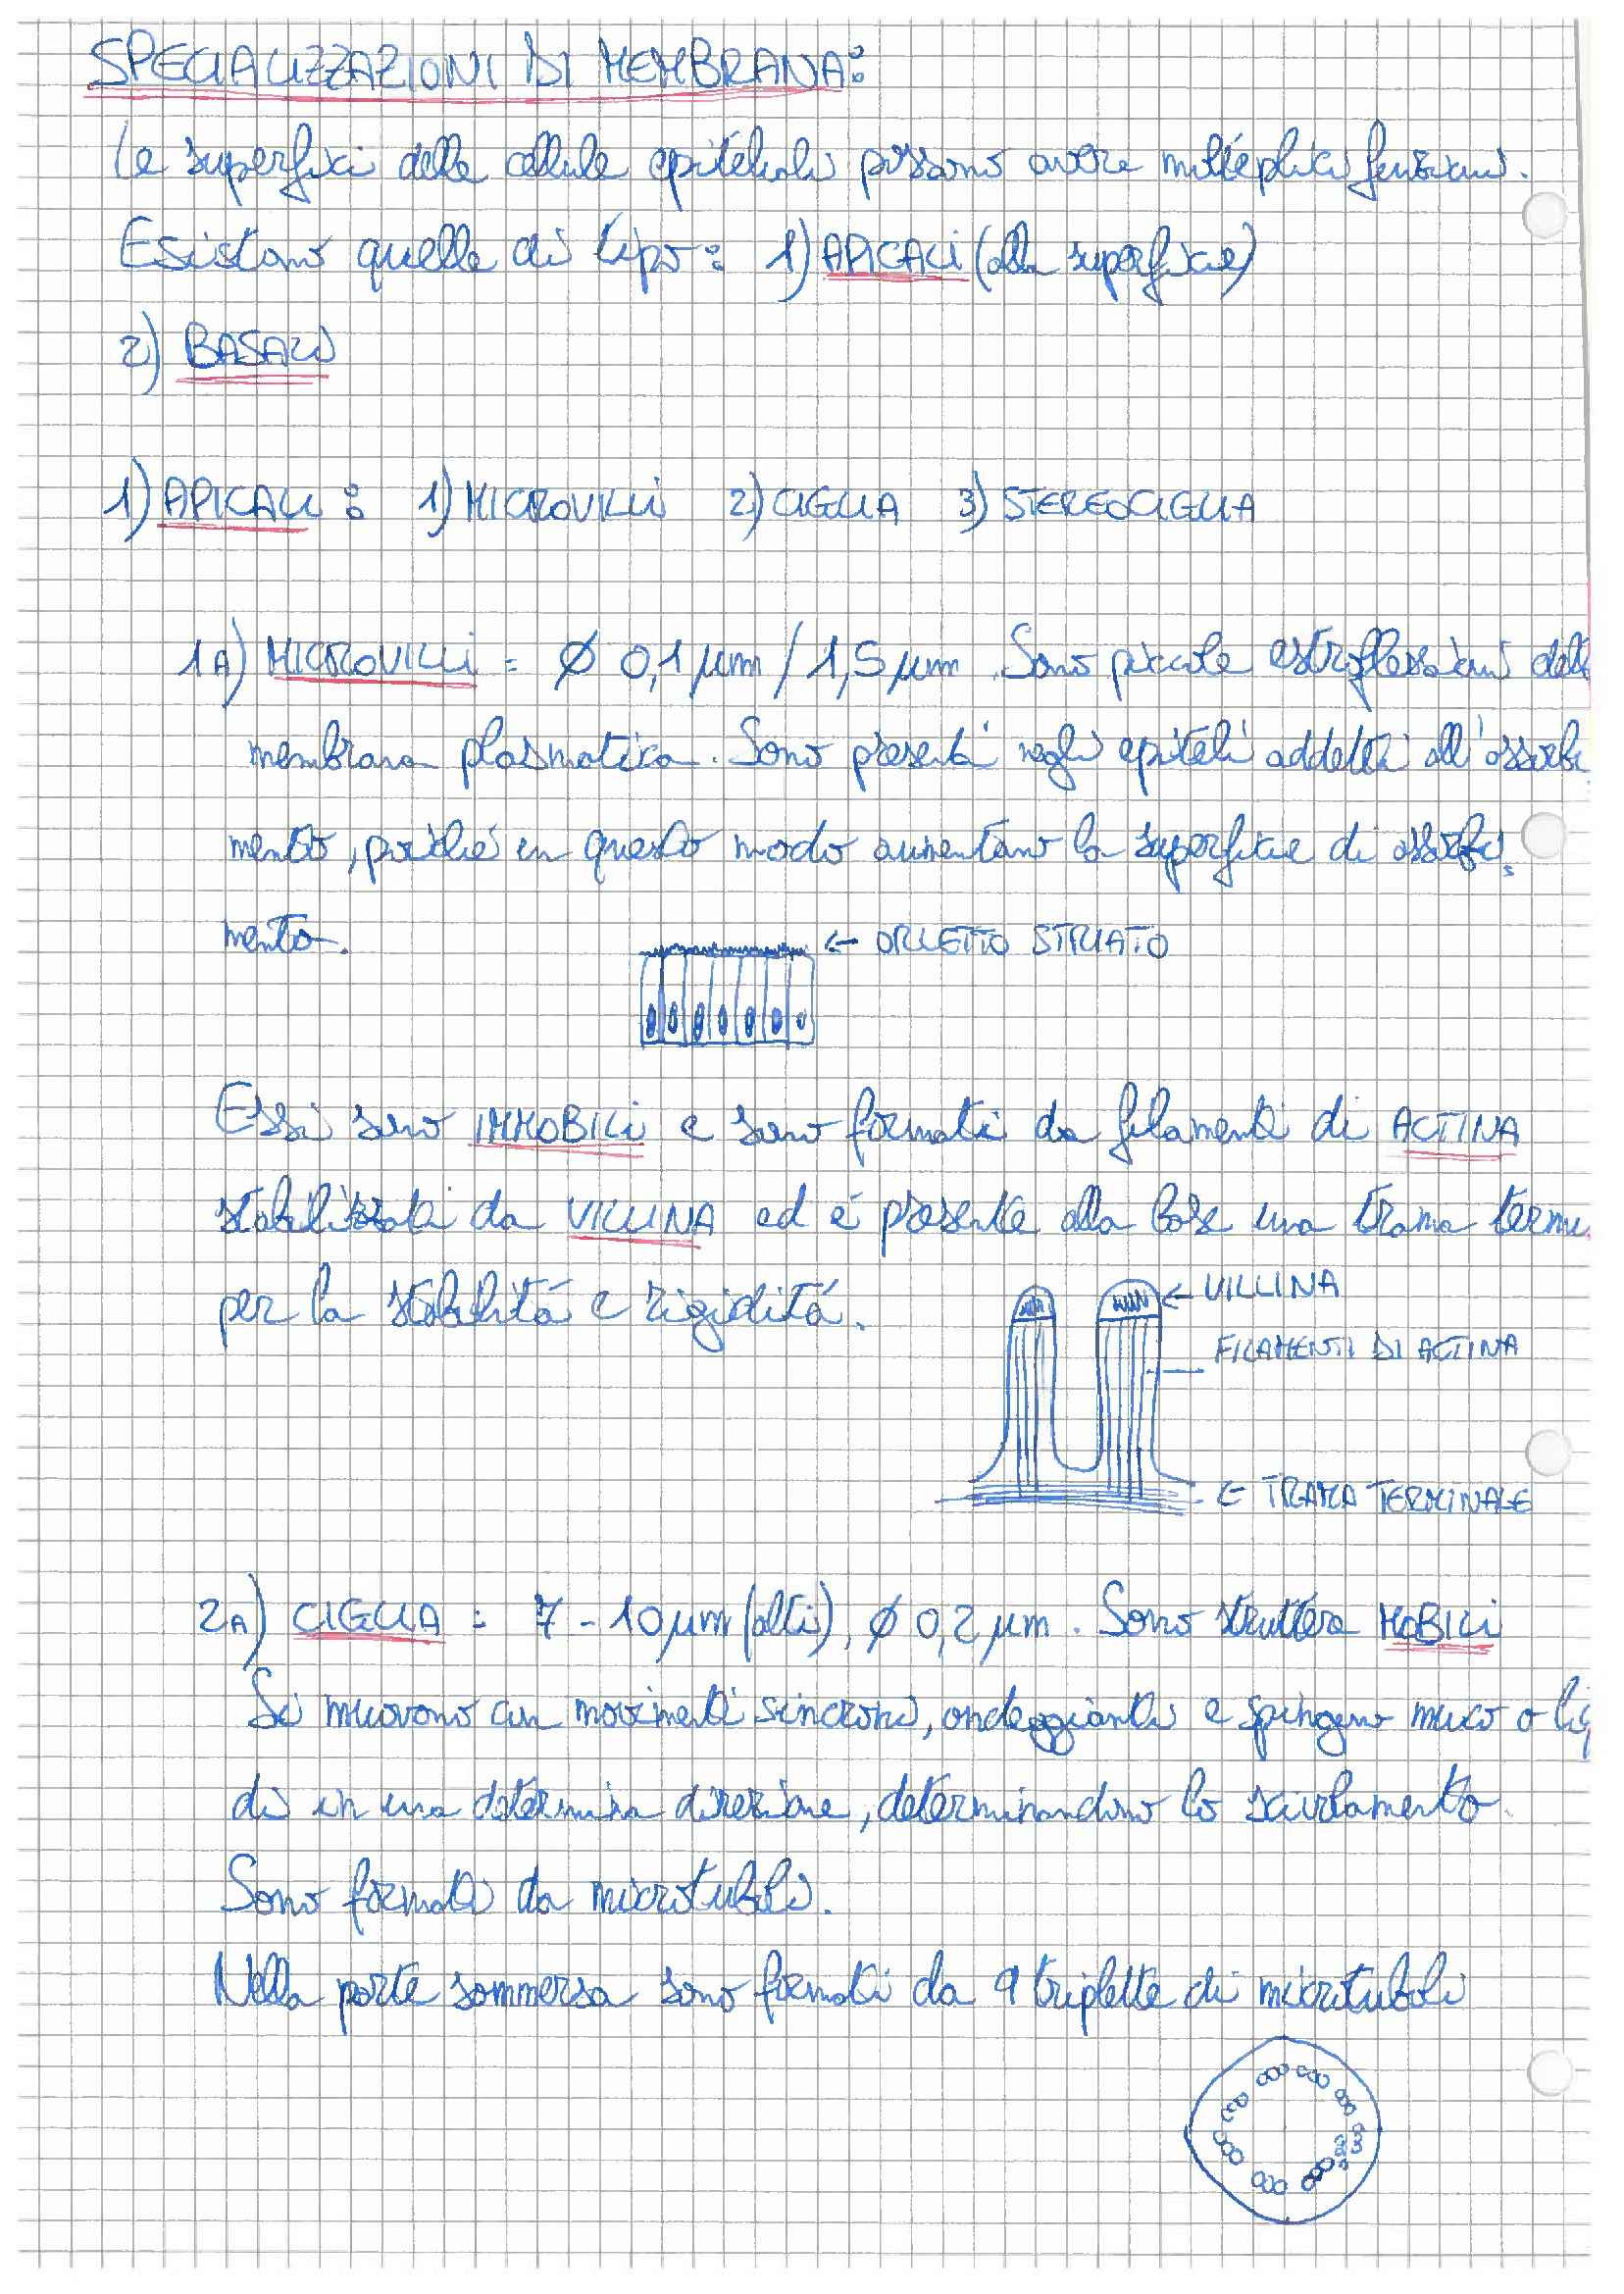 SPECIALIZZAZIONI DI MEMBRANA:
Le superfici delle cellule epiteliali possono avere molteplici funzioni.
Esistono quelle di tipo: 1) APICALI (alla superficie)
2) BASALI
1) APICALI: 1) MICROVILLI 2) CIGLIA 3) STEREOCIGLIA
1A) MICROVILLI = Ø 0,1 µm / 1,5 µm. Sono piccole estroflessioni dell
membrana plasmatica. Sono presenti negli epiteli addetti all'assorbi
mento, poiché in questo modo aumentano la superficie di assorbi.
mento.
← ORLETTO STRIATO
Essi sono IMMOBILI e sono formati da filamenti di ACTINA
stabilizzati da VILLINA ed é presente alla base una trama termi
per la stabilitá e rigiditá.
← VILLINA
FILAMENTI DI ACTINA
← TRAMA TERMINALE
2A) CIGLIA = 7-10 µm (alti), Ø 0,2 µm. Sono strutture MOBILI
Si muovono con movimenti sincroni, ondeggianti e spingono muco o liq
di in una determina direzione, determinandono lo scivolamento.
Sono formati da microtubuli.
Nella parte sommersa sono formati da 9 triplette di microtuboli